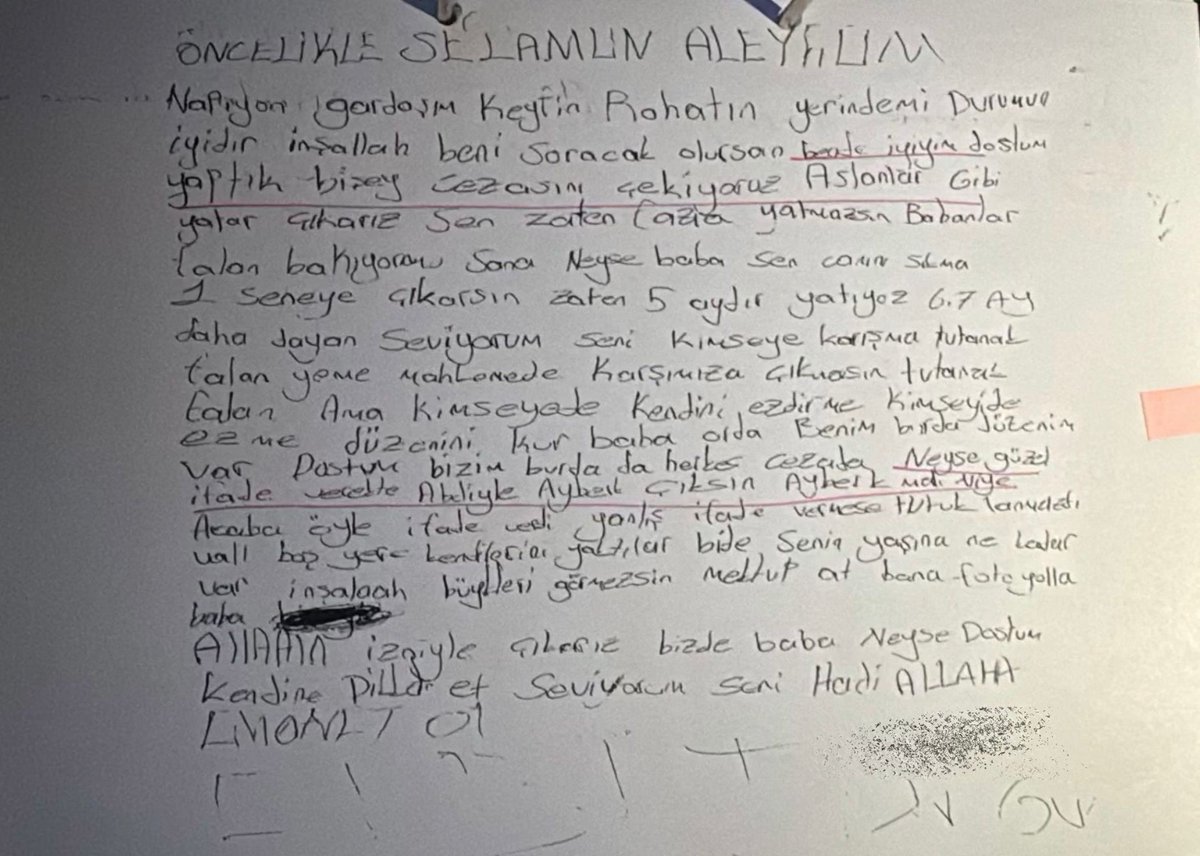 ÖNCELİKLE SELAMUN ALEYKUM
Napıyon gardaşım Keyfin Rahatın yerindemi Durumun
iyidir inşallah beni soracak olursan bende iyiyim dostum
yaptık bizşey cezasını çekiyoruz Aslanlar Gibi
yatar çıkarız sen zaten fazla yatmazsın Babanlar
falan bakıyoram sana Neyse baba sen canın sıkma
1 seneye çıkarsın zaten 5 aydır yatıyoz 6.7 AY
daha dayan Seviyorum seni Kimseye karışma tutanak
falan yeme mahkemede Karşımıza çıkmasın tutanak
falan Ama Kimseyede Kendini ezdirme Kimseyide
ezme düzenini kur baba orda Benim burda düzenim
var Dostum bizim burda da herkes cezada Neyse güzel
ifade verelte Abiliyle Ayberk Çıksın Ayberk niye
Acaba öyle ifade verdi yanlış ifade vermese tutuk
vall boş yere kendilerini yaktılar bide Senin yaşına ne kadar
var inşalaah büyükleri görmezsin mektup at bana foto yolla
baba
ALLAHIN izniyle çıkarız bizde baba Neyse Dostum
Kendine Dikkat et Seviyorum seni Hadi ALLAHA
EMONET Ol